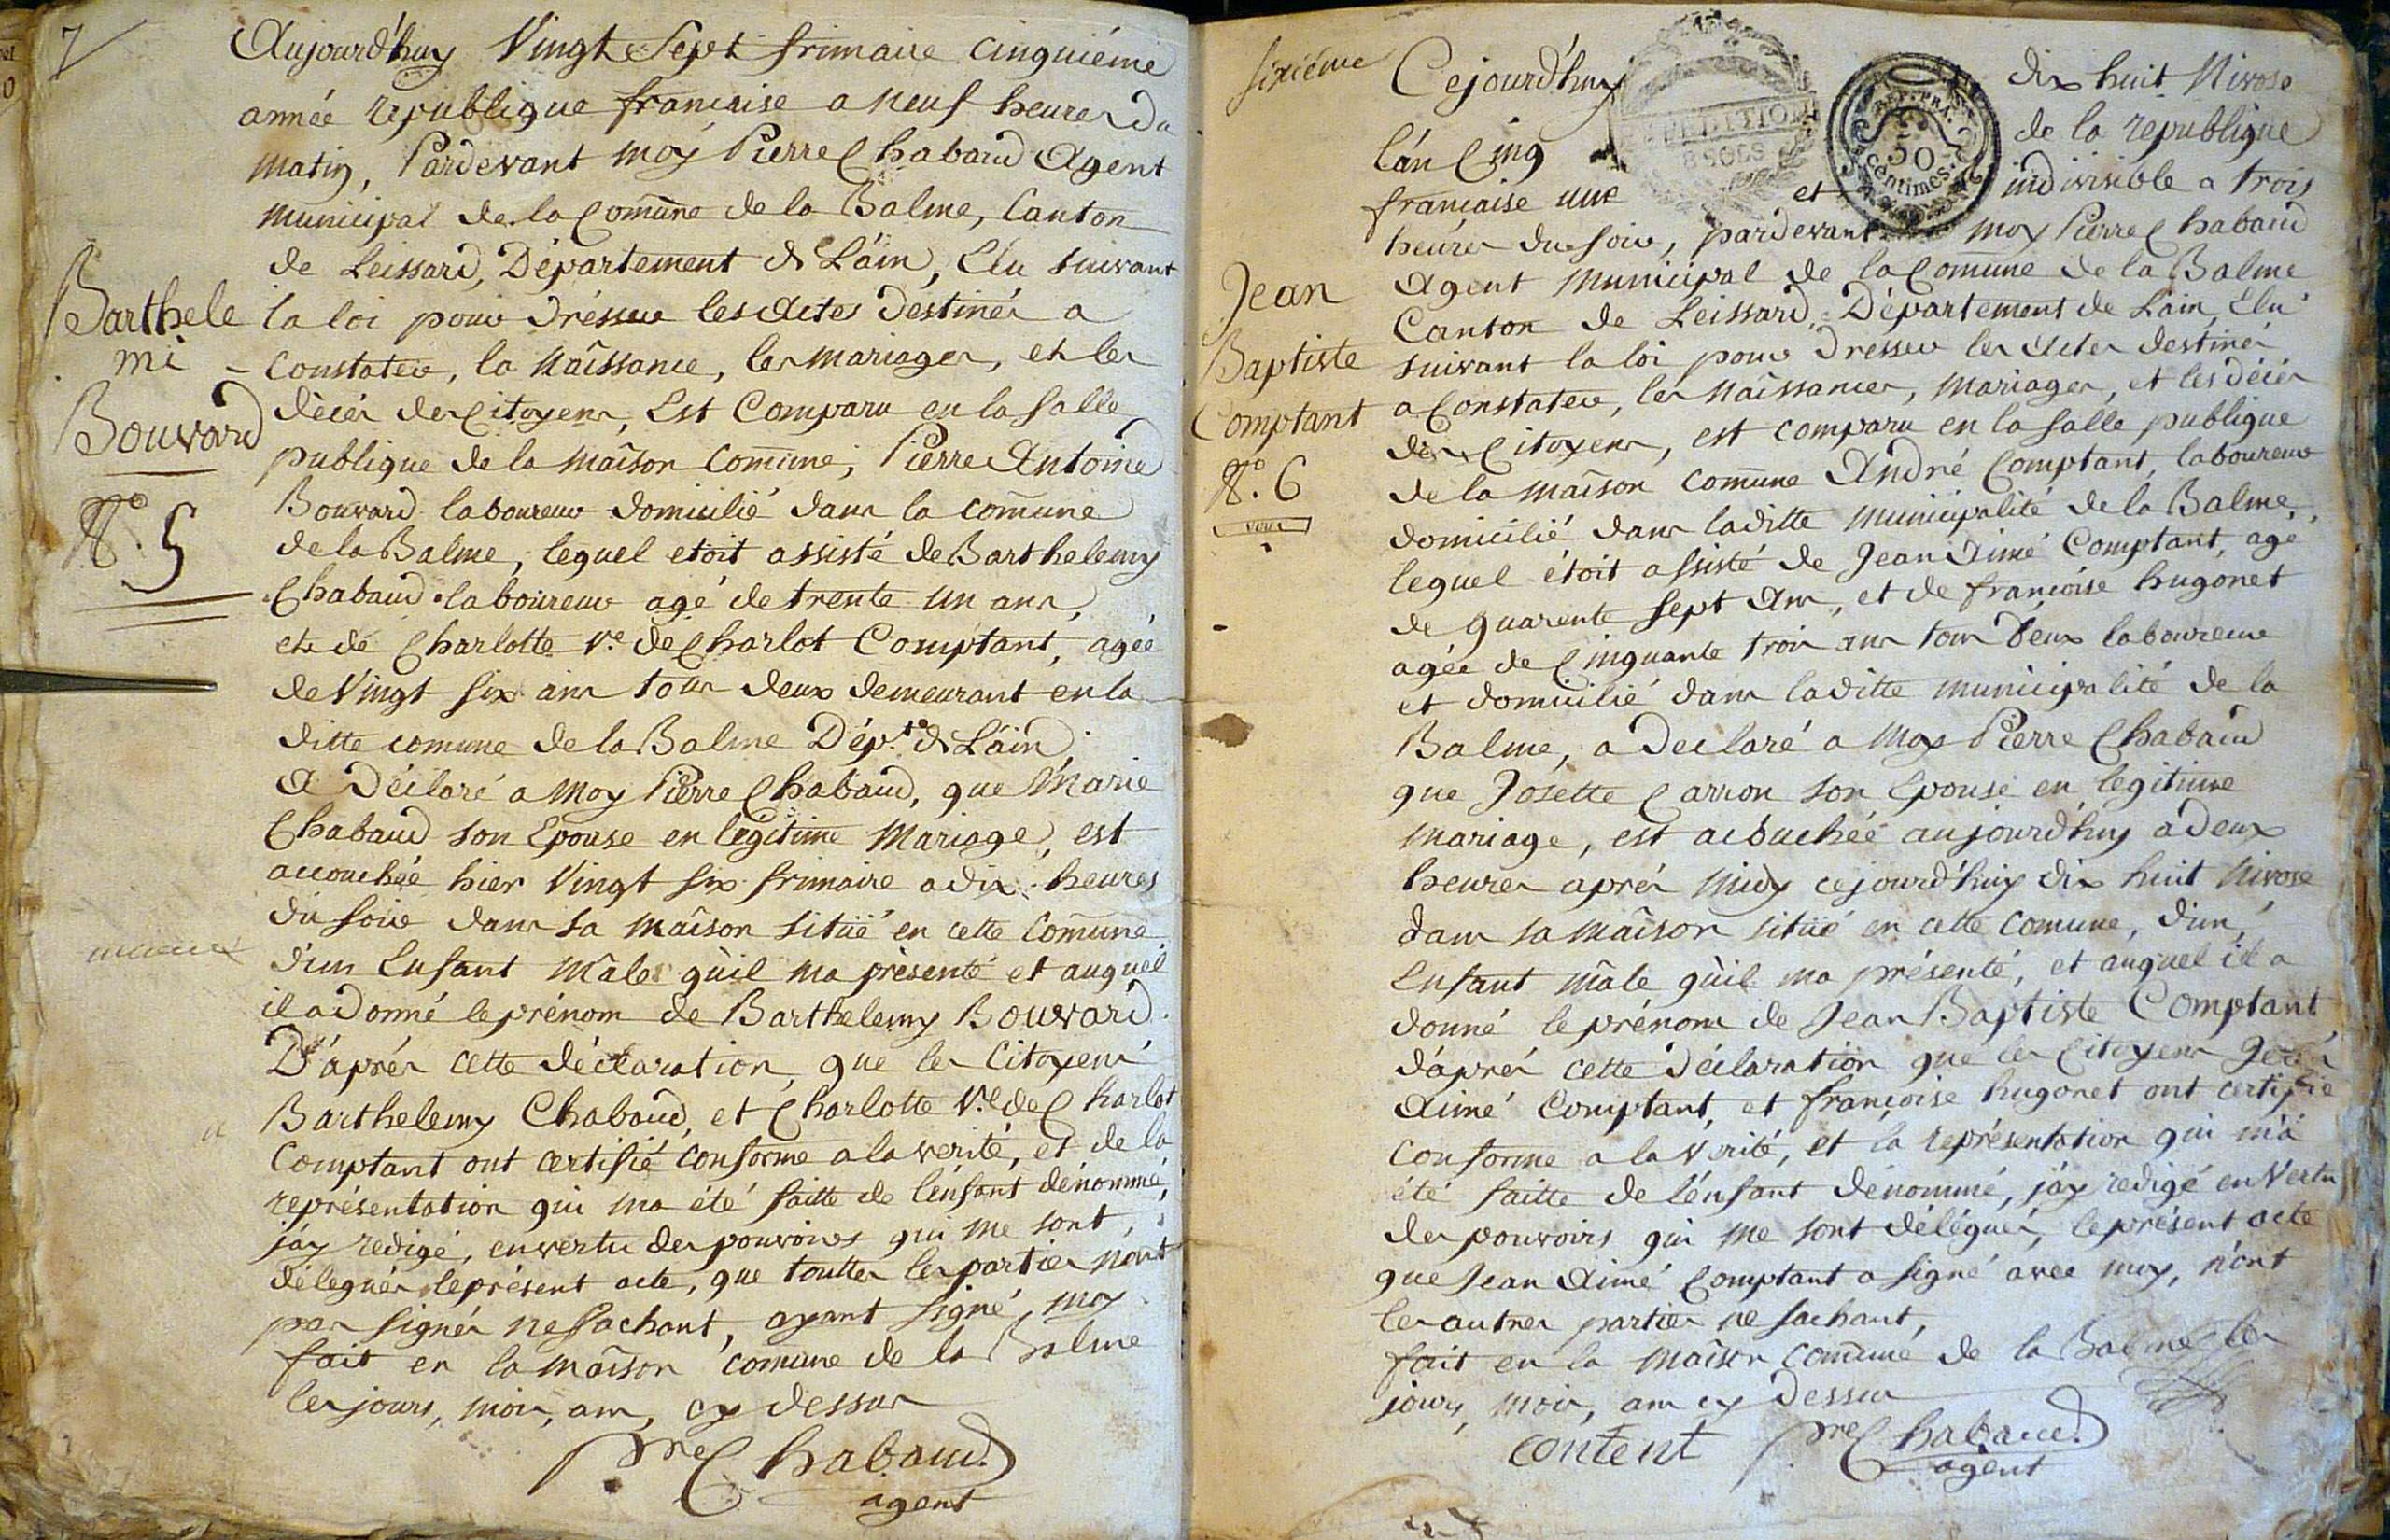 7
Aujourd'huy Vingt Sept frimaire cinquiéme
année republique francaise a neuf heures du
matin, Pardevant moy Pierre Chabaud Agent
municipal de la Comune de la Balme, Canton
de Leissard, Département de L'ain, Elu suivant
la loi pour drésser les Actes destinés a
Constater, la Naîssance, les mariages, et les
décés des Citoyens, Est Comparu en la salle
publique de la maîson comune, Pierre Antoine
Bouvard laboureur domicilié dans la comune
de la Balme, lequel etoit assisté de Barthelemy
Chabaud laboureur agé de trente un ans,
et de Charlotte Ve. de Charlot Comptant, agée
de Vingt six ans tous deux demeurant en la
ditte comune de la Balme Dépt. de L'ain,
A Déclaré a moy Pierre Chabaud, que Marie
Chabaud son Epouse en légitime Mariage, est
accouchée hier Vingt six frimaire a dix heures
du soir dans sa maîson sitüé en cette Comune
d'un Enfant mâle qu'il ma présenté et auquel
il a donné le prénom de Barthelemy Bouvard.
D'aprés cette déclaration, que les Citoyens
Barthelemy Chabaud, et Charlotte Ve. de Charlot
Comptant ont certifié conforme a la verité, et de la
représentation qui ma été faitte de l'énfant dénommé,
j'ay redigé, en vertu des pouvoirs qui me sont
délegués le présent acte, que touttes les parties n'ont
pas signés ne sachant, ayant signé, moy
fait en la maîson comune de la Balme
les jours, mois, ans, cy dessus
Pre Chabaud
agent
Barthele
mi -
Bouvard
No. 5
sixiéme
Cejourd'huy dix huit Nivose
l'án Cinq de la republique
francaise une et indivisible a trois
heures du soir, pardevant moy Pierre Chabaud
Agent municipal de la Comune de la Balme
Canton de Leissard, Département de Lain, Elu
suivant la loi pour dresser les Actes destinés
a Constater, les Naîssances, mariages, et les décés
des Citoyens, est comparu en la salle publique
de la maîson comune André Comptant, laboureur
domicilié dans laditte municipalité de la Balme,
lequel étoit assisté de Jean Aimé Comptant, agé
de quarente sept Ans, et de francoise hugonet
agée de Cinquante trois ans tous deux laboureur
et domicilié dans laditte municipalité de la
Balme, a declaré a moy Pierre Chabaud
que Josette Carron son Epouse en legitime
mariage, est acouchéé aujourd'huy a deux
heures aprés midy cejourd'huy dix huit Nivose
dans sa maîson sitüé en cette comune, d'un
Enfant mâle qu'il ma présenté, et auquel il a
donné le prénom de Jean Baptiste Comptant
d'áprés cette déclaration que les Citoyens Jean
Aimé Comptant, et francoise hugonet ont certifié
conforme a la Vérité, et la représentation qui m'á
été faitte de l'énfant dénommé, j'ay redigé en Vertu
des pouvoirs qui me sont délégués, le présent acte
que Jean Aimé Comptant a signé avec moy, n'ont
les autres parties ne sachant,
fait en la maîson comune de la Balme les
jours, mois, ans cy dessus
content Pre Chabaud
agent
Jean
Baptiste
Comptant
No. 6
8 SOLS
REP. FRA.
50
Centimes.